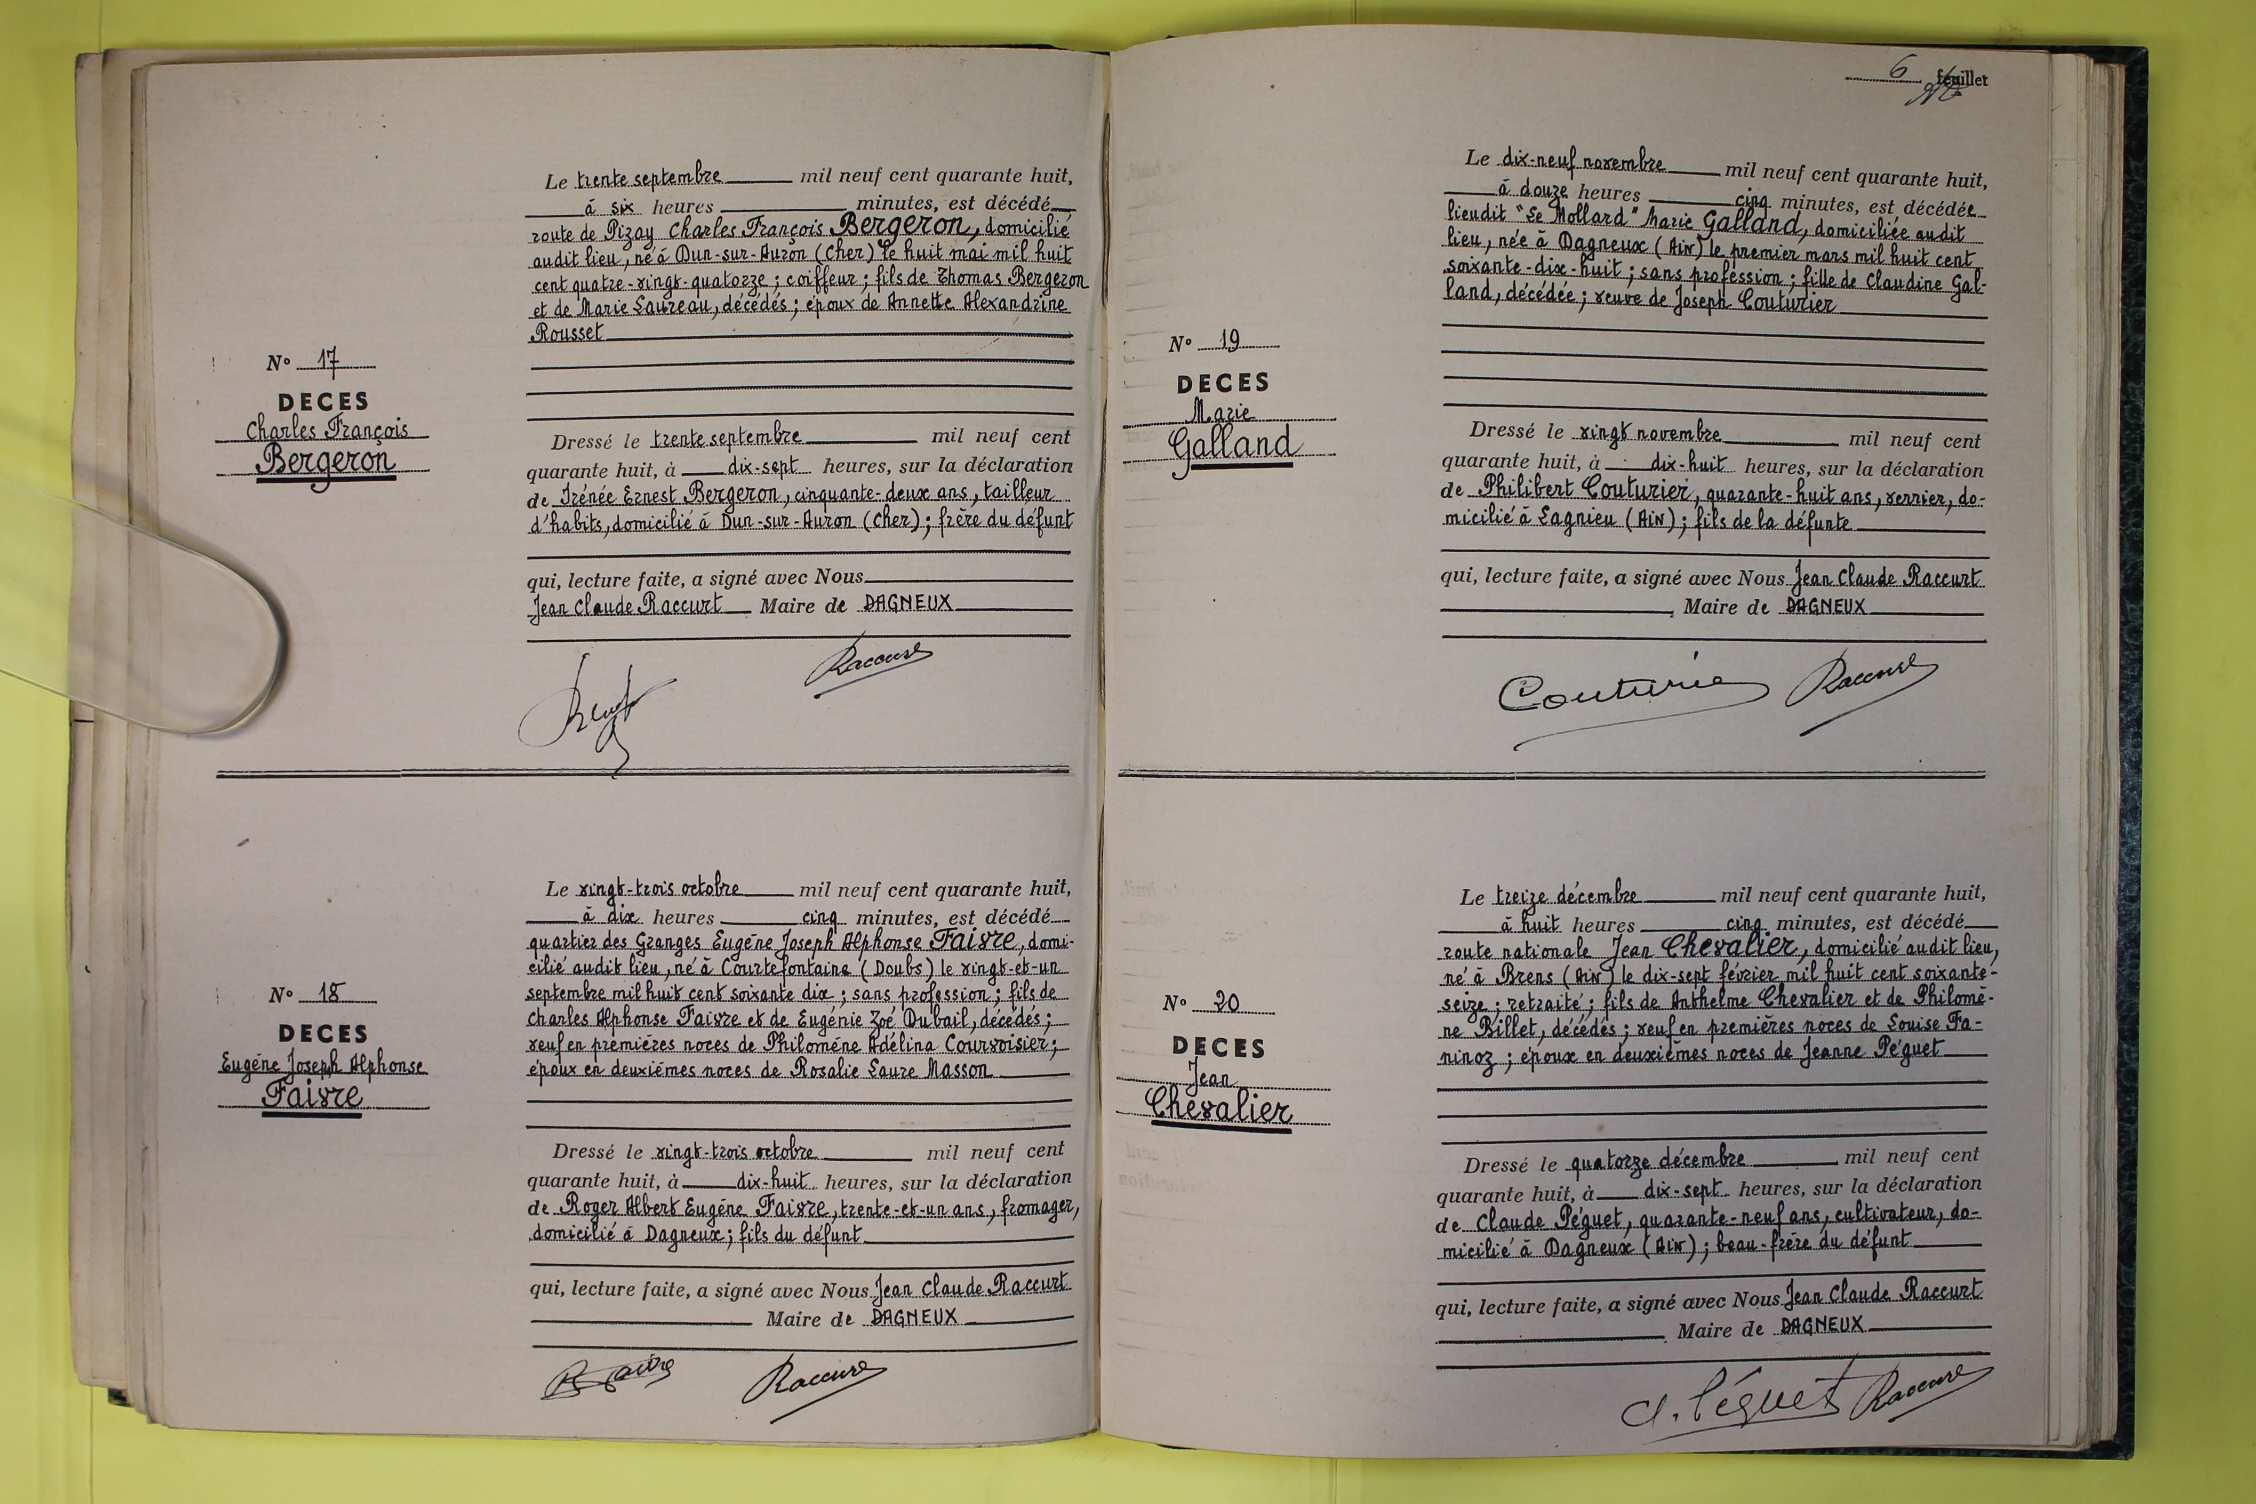 Le trente septembre mil neuf cent quarante huit,
à six heures minutes, est décédé
route de Pizay Charles François Bergeron, domicilié
audit lieu, né à Dun-sur-Auron (Cher) le huit mai mil huit
cent quatre-vingt-quatorze ; coiffeur ; fils de Thomas Bergeron
et de Marie Laureau, décédés ; époux de Annette Alexandrine
Rousset
N° 17
DECES
Charles François
Bergeron
Dressé le trente septembre mil neuf cent
quarante huit, à dix-sept heures, sur la déclaration
de Irénée Ernest Bergeron, cinquante-deux ans, tailleur
d'habits, domicilié à Dun-sur-Auron (Cher) ; frère du défunt
qui, lecture faite, a signé avec Nous
Jean Claude Raccurt Maire de DAGNEUX
Raccurt
Le vingt-trois octobre mil neuf cent quarante huit,
à dix heures cinq minutes, est décédé
quartier des Granges Eugène Joseph Alphonse Faivre, domi-
cilié audit lieu, né à Courtefontaine (Doubs) le vingt-et-un
septembre mil huit cent soixante dix ; sans profession ; fils de
Charles Alphonse Faivre et de Eugénie Zoé Dubail, décédés ;
veuf en premières noces de Philomène Adélina Courvoisier ;
époux en deuxièmes noces de Rosalie Laure Masson
N° 18
DECES
Eugène Joseph Alphonse
Faivre
Dressé le vingt-trois octobre mil neuf cent
quarante huit, à dix-huit heures, sur la déclaration
de Roger Albert Eugène Faivre, trente-et-un ans, fromager,
domicilié à Dagneux ; fils du défunt
qui, lecture faite, a signé avec Nous Jean Claude Raccurt
Maire de DAGNEUX
R Faivre Raccurt
6 feuillet
Le dix-neuf novembre mil neuf cent quarante huit,
à douze heures cinq minutes, est décédée
lieudit "Le Mollard" Marie Galland, domiciliée audit
lieu, née à Dagneux (Ain) le premier mars mil huit cent
soixante-dix-huit ; sans profession ; fille de Claudine Gal-
land, décédée ; veuve de Joseph Couturier
N° 19
DECES
Marie
Galland
Dressé le vingt novembre mil neuf cent
quarante huit, à dix-huit heures, sur la déclaration
de Philibert Couturier, quarante-huit ans, verrier, do-
micilié à Lagnieu (Ain) ; fils de la défunte
qui, lecture faite, a signé avec Nous Jean Claude Raccurt
, Maire de DAGNEUX
Couturier Raccurt
Le treize décembre mil neuf cent quarante huit,
à huit heures cinq minutes, est décédé
route nationale Jean Chevalier, domicilié audit lieu,
né à Brens (Ain) le dix-sept février mil huit cent soixante-
seize ; retraité ; fils de Anthelme Chevalier et de Philomè-
ne Billet, décédés ; veuf en premières noces de Louise Fa-
ninoz ; époux en deuxièmes noces de Jeanne Péguet
N° 20
DECES
Jean
Chevalier
Dressé le quatorze décembre mil neuf cent
quarante huit, à dix-sept heures, sur la déclaration
de Claude Péguet, quarante-neuf ans, cultivateur, do-
micilié à Dagneux (Ain) ; beau-frère du défunt
qui, lecture faite, a signé avec Nous Jean Claude Raccurt
, Maire de DAGNEUX
Cl. Péguet Raccurt